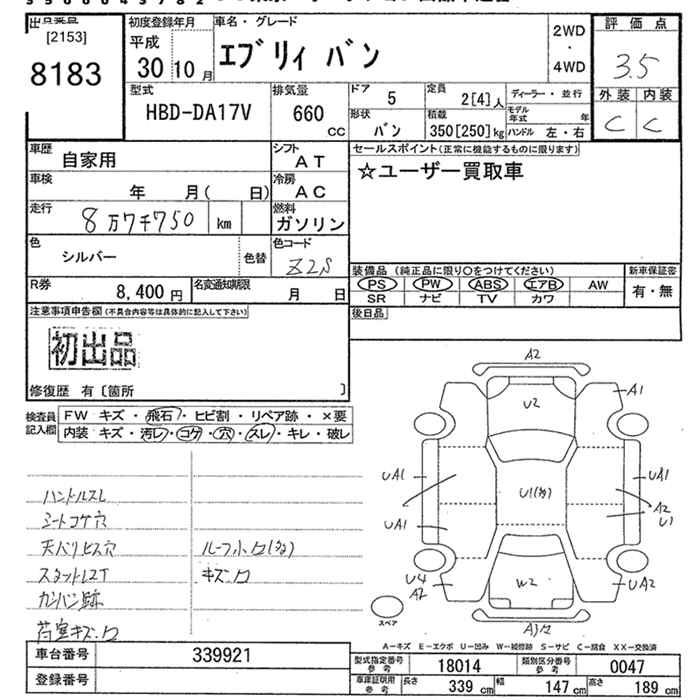 [2153]
8183
初度登録年月
平成
30 10 月
車名・グレード
エブリィ バン
2WD
・
4WD
評価点
3.5
外装 内装
C C
型式
HBD-DA17V
排気量
660
CC
ドア
5
形状
バン
定員
2[4]人
積載
350[250]kg
ディーラー・並行
モデル年式 年
ハンドル 左・右
車歴
自家用
シフト
AT
車検
年 月( 日)
冷房
AC
走行
8万7千750 km
燃料
ガソリン
色
シルバー
色替
色コード
Z2S
R券
8,400 円
名変通知期限
月 日
セールスポイント(正常に機能するものに限ります)
☆ユーザー買取車
装備品 (純正品に限り○をつけてください)
PS PW ABS エアB AW
SR ナビ TV カワ
新車保証書
有・無
後日品
注意事項申告欄(不具合内容等は具体的に記入して下さい)
初出品
修復歴 有〔箇所 〕
検査員記入欄
FW キズ・飛石・ヒビ割・リペア跡・×要
内装 キズ・汚レ・コゲ・穴・スレ・キレ・破レ
ハンドルスレ
シートコゲ穴
天バリビス穴
カンバン跡
荷室キズ・凹
ルーフ小凹(多)
キズ・凹
A2
U2
A1
UA1
UA1
U1(多)
UA1
A2
U1
U4
A2
W2
UA2
スペア
A-キズ E-エクボ U-凹み W-補修跡 S-サビ C-腐食 XX-交換済
車台番号
339921
登録番号
型式指定番号
参考
18014
類別区分番号
参考
0047
車庫証明用
参考
長さ
339 cm
幅
147 cm
高さ
189 cm